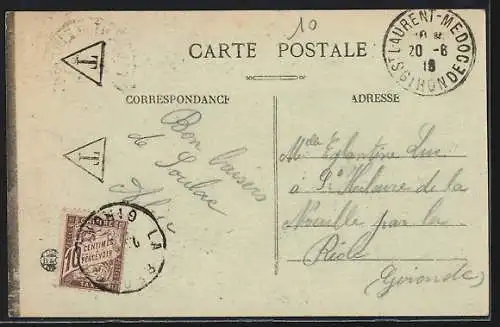 10
CARTE POSTALE
ST LAURENT-MEDOC
GIRONDE
20 -6
CORRESPONDANCE
ADRESSE
T
T
Bon baisers
de Soulac
Alice
Mlle Eglantine Luc
à St Hilaire de la
Noaille par la
Réole
Gironde
10
CENTIMES
À PERCEVOIR
LA RÉOLE
GIRONDE